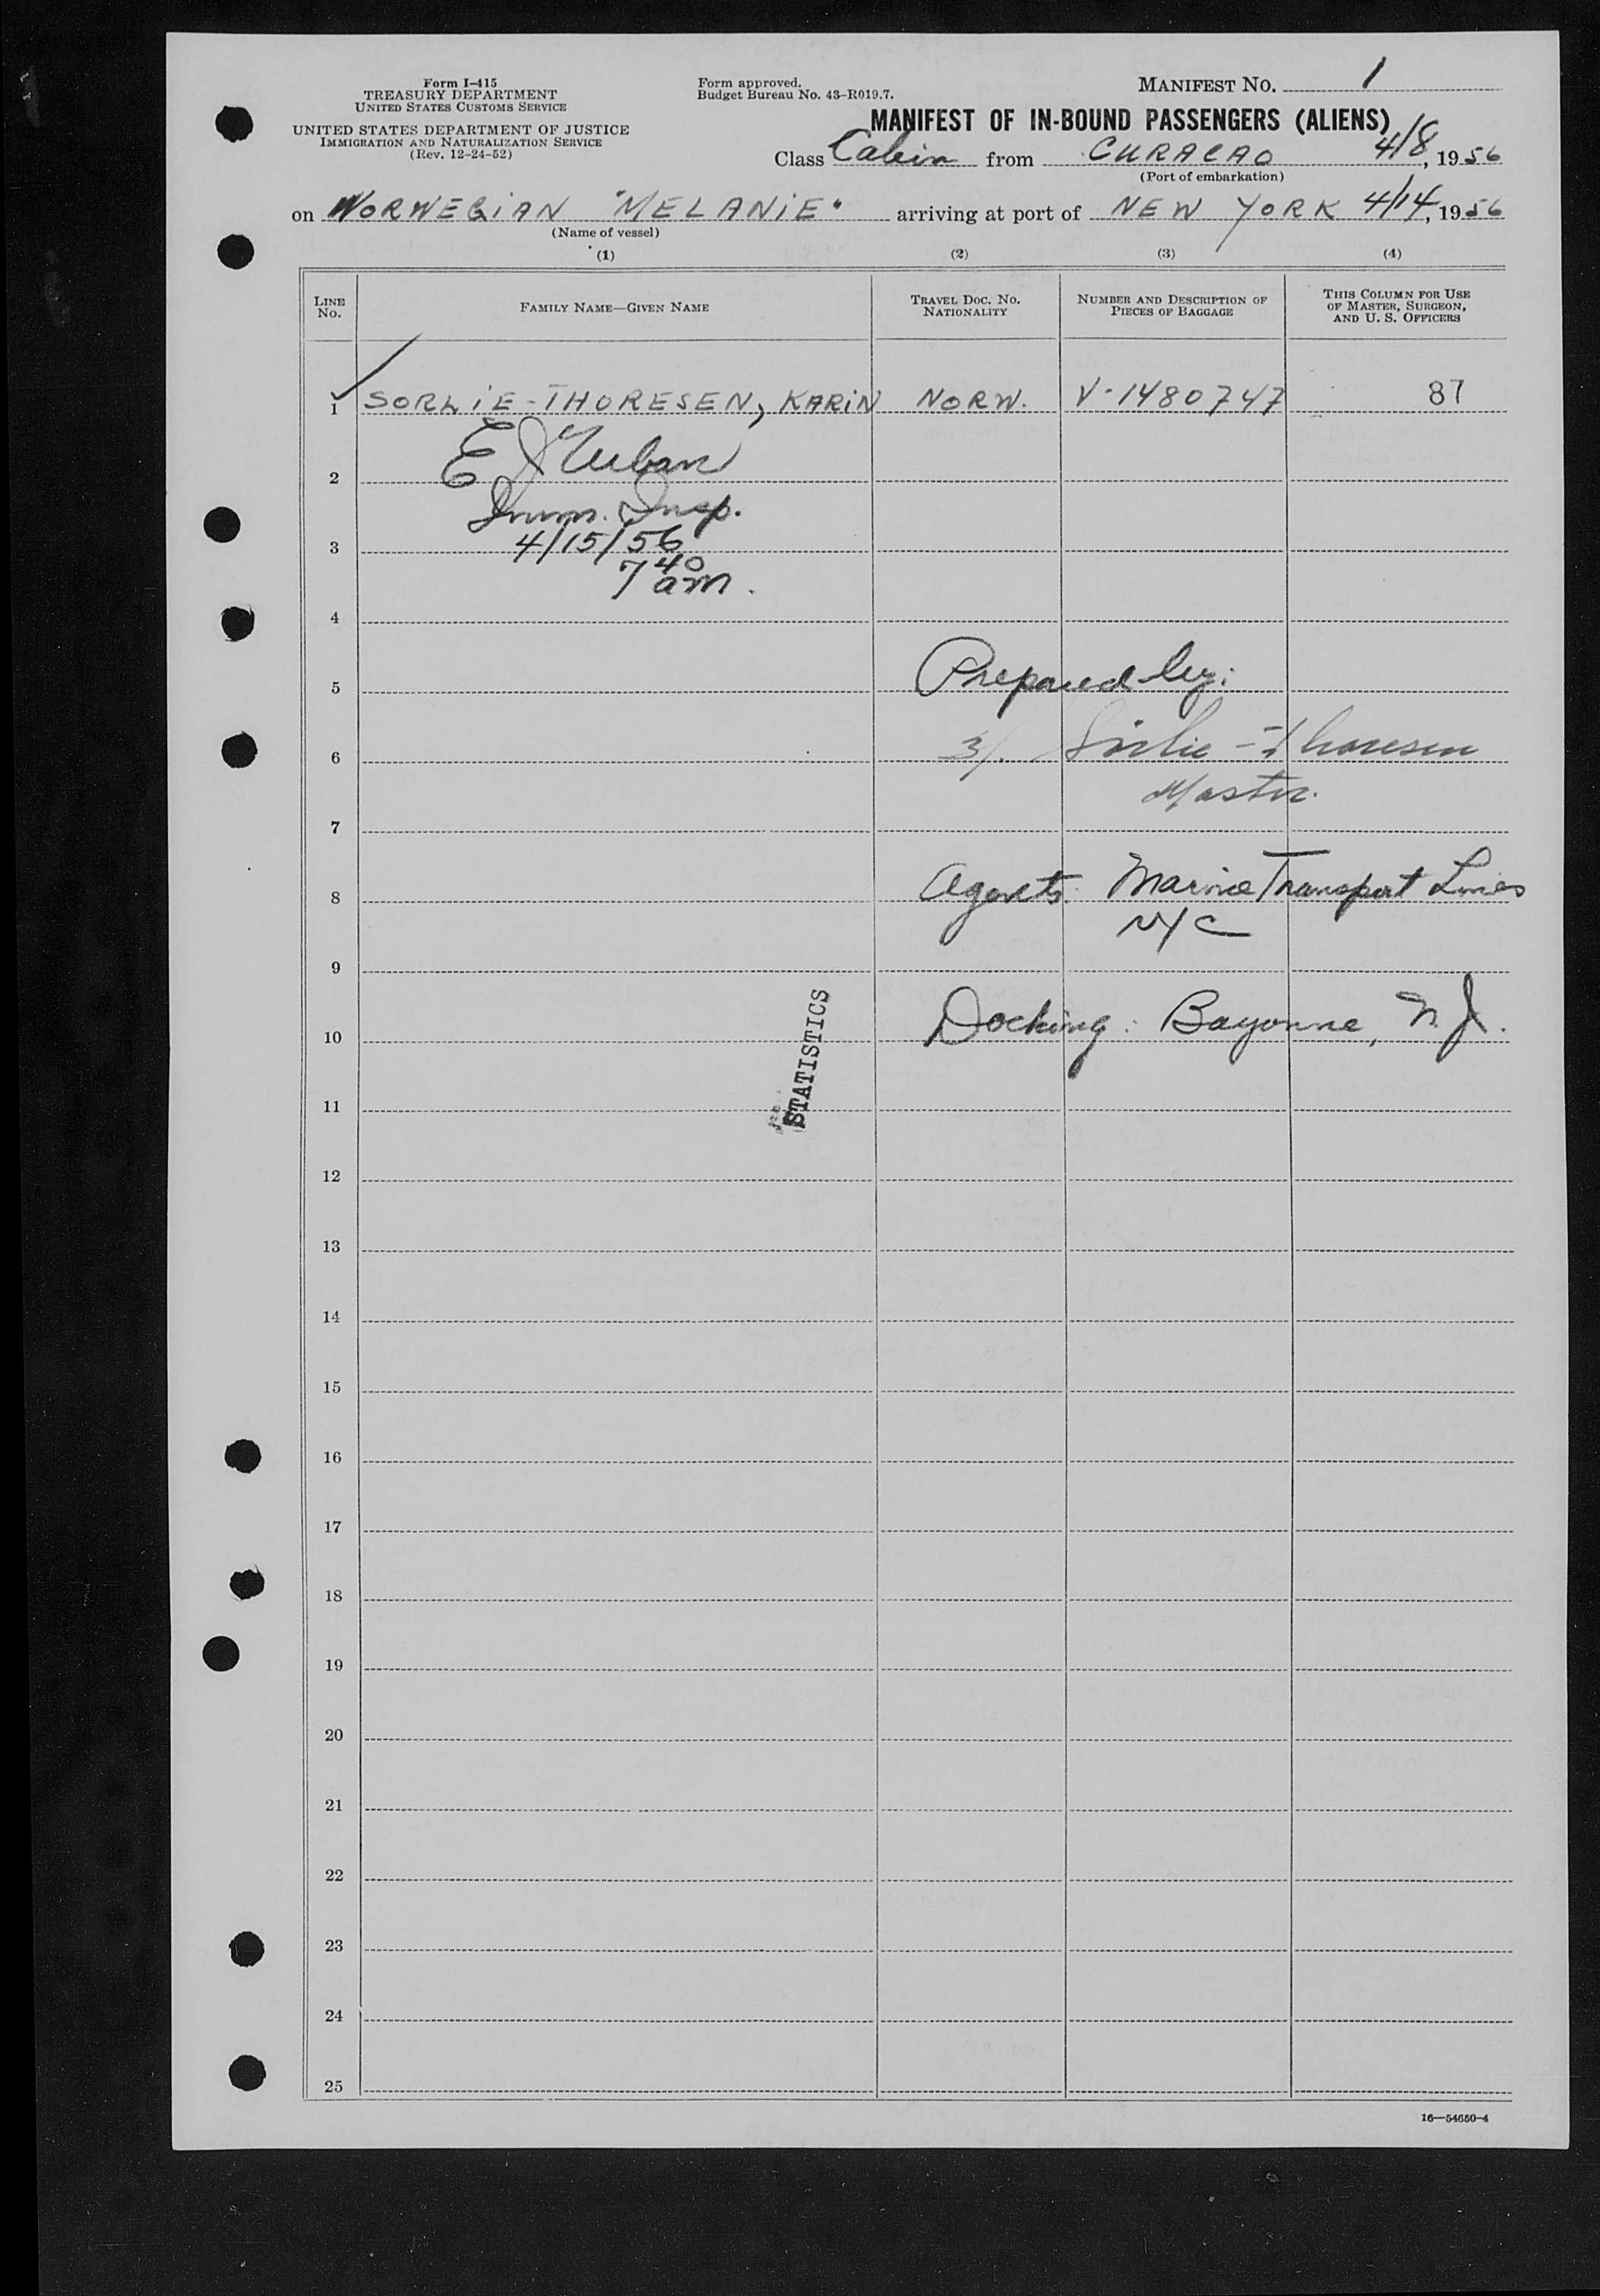 Form I-415
TREASURY DEPARTMENT
UNITED STATES CUSTOMS SERVICE
UNITED STATES DEPARTMENT OF JUSTICE
IMMIGRATION AND NATURALIZATION SERVICE
(Rev. 12-24-52)
Form approved.
Budget Bureau No. 43-R019.7.
MANIFEST NO. 1
MANIFEST OF IN-BOUND PASSENGERS (ALIENS)
Class Cabin from CURACAO 4/8, 1956
(Port of embarkation)
on NORWEGIAN "MELANIE" arriving at port of NEW YORK 4/14, 1956
(Name of vessel)
(1) (2) (3) (4)
LINE NO.
FAMILY NAME—GIVEN NAME
TRAVEL DOC. NO. NATIONALITY
NUMBER AND DESCRIPTION OF PIECES OF BAGGAGE
THIS COLUMN FOR USE OF MASTER, SURGEON, AND U. S. OFFICERS
1 SORLIE-THORESEN, KARIN NORW. V-1480747 87
E J
2
Imm. Insp.
3 4/15/56
7 40 am.
4
5 Prepared by:
6 Sorlie-Thoresen
Master.
7
8 Agents: Marine Transport Lines
NYC
9
10 Docking: Bayonne, N.J.
STATISTICS
11
12
13
14
15
16
17
18
19
20
21
22
23
24
25
16—54650-4